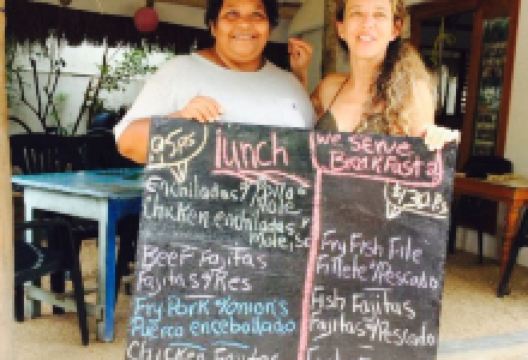 95ps lunch
Enchiladas
Mole
Chicken enchiladas
Mole,
Beef Fajitas
Fajitas Res
Fry Pork onion's
Puerco encebollado
Chicken Fajitas
We Serve
Breakfast
Fry Fish File
Fillete Pescado
Fish Fajitas
Fajitas Pescado